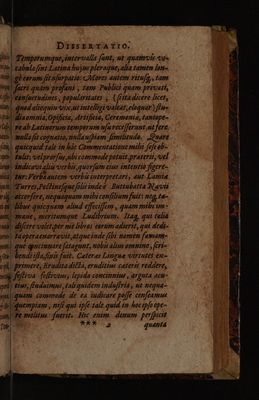 DISSERTATIO.
Temporumque, intervalla sunt, ut quamvis vo-
cabula sint Latina hujus pleraque, alia tamen lon-
gè eorum sit usurpatio: Mores autem ritusq;, tam
sacri quàm profani, tam Publici quàm privati,
consuetudines, popularitates, (si ita dicere licet,
quod alicquin vix ut intelligi valeat, eloquar) stu-
dia omnia, Opificia, Artificia, Ceremonia, tantope-
re ab Latinorum temporum usu recesserunt, ut fere
nulla sit cognatio, nulla usquam similitudo. Quare
quicquid tale in hâc Commentatione mihi sese ob-
tulit, vel prorsus, ubi commodè potui, præterii, vel
indicavi aliis verbis, quorsum ejus intentio figere-
tur: Verba autem verbis interpretari, aut Lamiæ
Turres, Pectinesque solis inde è Butubatta Nævii
accersere, nequaquam mihi consilium fuit: neq, ta-
libus quicquam aliud effecissem, quam mihi im-
mane, meritumque Ludibrium. Itaq, qui talia
discere valet, per me libros eorum adierit, qui dedi-
ta opera enarravit, atque inde sibi nomen famam-
que quæsivisse satagunt, nobis alius omnino, scri-
bendi ista, finis fuit. Cæteras Linguæ virtutes ex-
primere, Erudita dictâ, eruditius cæteris reddere,
festiva festivius; lepida concinnius, arguta acu-
tius, studuimus, tali quidem industriâ, ut nequa-
quam commodè de ea iudicare posse censeamus
quempiam, nisi qui ipse tale quid in hoc ipso ope-
re molitus fuerit. Hic enim demum perspicit
*** 2 quanta